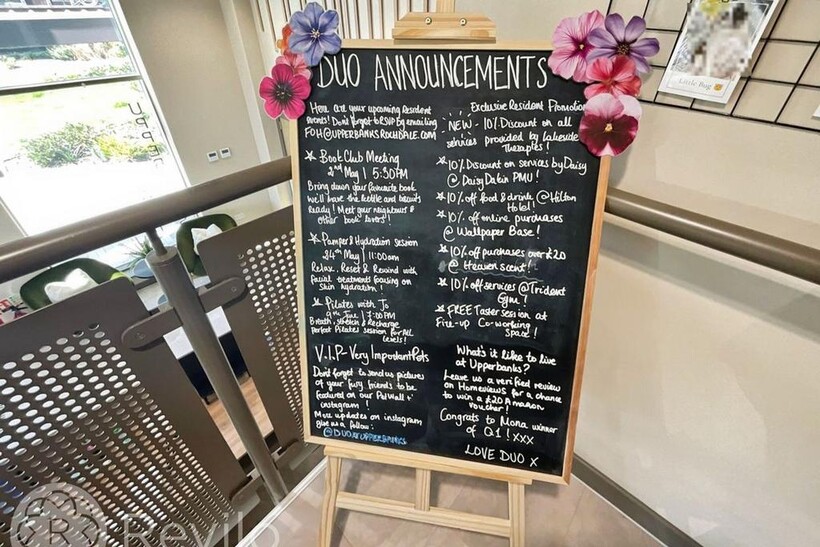 DUO ANNOUNCEMENTS
Here are your upcoming Resident
events! Don't forget to RSVP by emailing
FOH@UPPERBANKSROCHDALE.COM
Book Club Meeting
2nd May | 5:30PM
Bring down your favourite book
We'll have the kettle and biscuits
Ready! Meet your neighbours &
other book lovers!
Pamper & Hydration session
24th May | 11:00am
Relax, Reset & Rewind with
facial treatments focusing on
Skin hydration!
Pilates with Jo
9th June | 7:00PM
Breath, stretch & Recharge
perfect Pilates session for ALL
levels!
V.I.P - Very Important Pets
Don't forget to send us pictures
of your furry friends to be
featured on our Pet Wall +
instagram!
More updates on instagram
give us a follow:
@DUOATUPPERBANKS
Exclusive Resident Promotion
NEW - 10% Discount on all
services provided by Lakeside
Therapies!
10% Discount on services by Daisy
@ Daisy Dakin PMU!
10% off food & drink @ Hilton
Hotel!
10% off online purchases
@ Wallpaper Base!
10% off purchases over £20
@ Heaven scent!
10% off services @ Trident
Gym!
FREE Taster session at
Fire-up Co-working
Space!
What's it like to live
at Upperbanks?
Leave us a verified review
on Homeviews for a chance
to win a £20 Amazon
voucher!
Congrats to Mona winner
of Q1! xxx
LOVE DUO x
Little Bug
R
Revilo